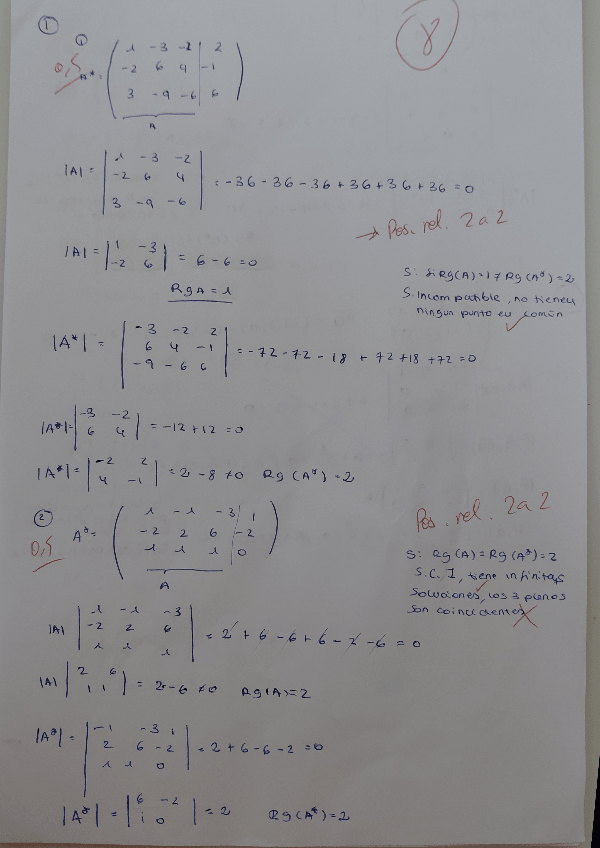 ①
8
①
0,5
A* = ( 1 -3 -2 | 2
-2 6 4 | -1
3 -9 -6 | 6 )
A
|A| = | 1 -3 -2
-2 6 4
3 -9 -6 | = -36 - 36 - 36 + 36 + 36 + 36 = 0
→ Pos. rel. 2 a 2
|A| = | 1 -3
-2 6 | = 6 - 6 = 0
Rg A = 1
Rg(A) = 1 ≠ Rg(A*) = 2
S. Incompatible, no tienen
ningun punto en común
|A*| = | -3 -2 2
6 4 -1
-9 -6 6 | = -72 - 72 - 18 + 72 + 18 + 72 = 0
|A*| = | -3 -2
6 4 | = -12 + 12 = 0
|A*| = | -2 2
4 -1 | = 2 - 8 ≠ 0 Rg (A*) = 2
②
0,5
A* = ( 1 -1 -3 | 1
-2 2 6 | -2
1 1 1 | 0 )
A
Pos. rel. 2 a 2
Si Rg(A) = Rg(A*) = 2
S.C.I, tiene infinitas
soluciones, los 3 planos
son coincidentes
|A| | 1 -1 -3
-2 2 6
1 1 1 | = 2 + 6 - 6 + 6 - 2 - 6 = 0
|A| | 2 6
1 1 | = 2 - 6 ≠ 0 Rg(A) = 2
|A*| = | -1 -3 1
2 6 -2
1 1 0 | = 2 + 6 - 6 - 2 = 0
|A*| = | 6 -2
1 0 | = 2 Rg(A*) = 2